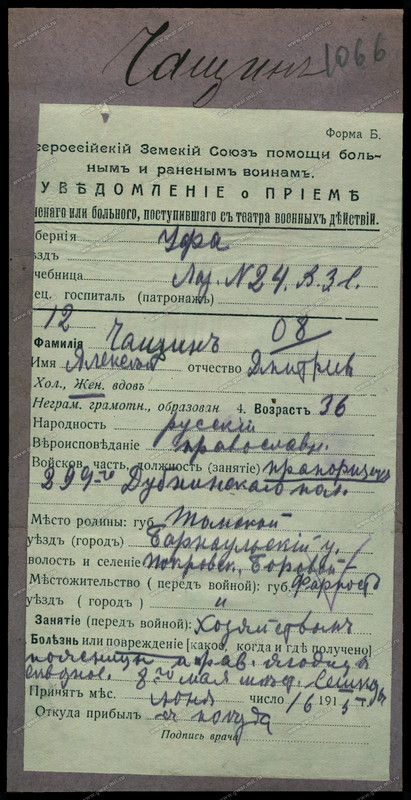 Чащинъ 1066
Форма Б.
сероссійскій Земскій Союзъ помощи боль-
нымъ и раненымъ воинамъ.
УВѢДОМЛЕНІЕ о ПРІЕМѢ
ненаго или больного, поступившаго съ театра военныхъ дѣйствій.
убернія Уфа
ѣздъ
чебница Лаз. N 24. В.З.С.
ец. госпиталь (патронажъ)
12 08
Фамилія Чащинъ
Имя Алексѣй отчество Дмитріев
Хол., Жен. вдовъ
Неграм. грамотн., образован 4. Возрастъ 36
Народность русскій
Вѣроисповѣданіе православн.
Войсков. часть, должность (занятіе) прапорщикъ
299-го Дубненскаго пол.
Мѣсто родины: губ. Томской
уѣздъ (городъ) Барнаульскій у.
волость и селеніе Покровск. Боровой
Мѣстожительство (передъ войной): губ.
уѣздъ (городъ) "
Занятіе (передъ войной):
Болѣзнь или поврежденіе [какое, когда и гдѣ получено]
поясницы и прав. ягодицы
8-го мая
Принятъ мѣс. іюня число 16 1915 г.
Откуда прибылъ
Подпись врача